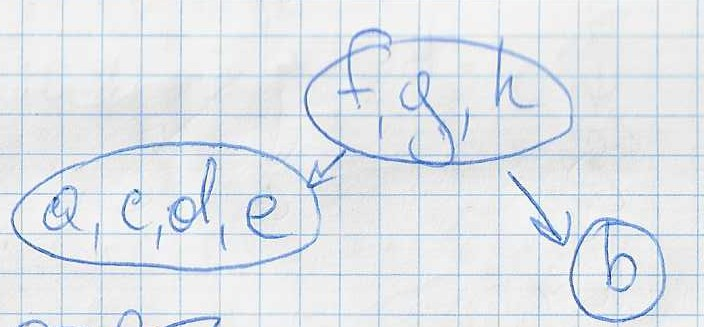 f, g, h
a, c, d, e
b